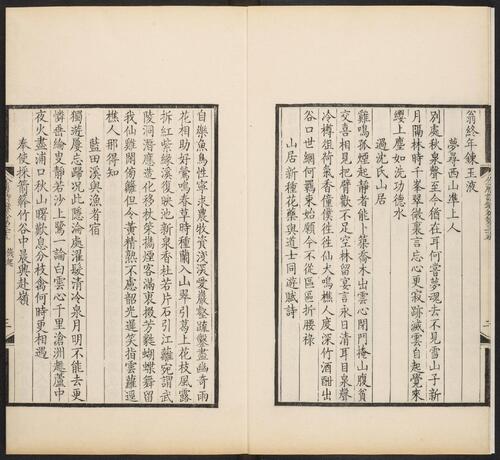 翁終年鍊玉液
夢尋西山準上人
別處秋泉聲至今猶在耳何嘗夢魂去不見雪山子新
月隔林時千峯翠微裏言忘心更寂跡滅雲自起覺來
纓上塵如洗功德水
過沈氏山居
雞鳴孤煙起靜者能卜築喬木出雲心閑門掩山腹貧
交喜相見把臂歡不足空林留宴言永日清耳目泉聲
冷樽俎荷氣香僮僕往往仙犬鳴樵人度深竹酒酣出
谷口世網何羈束始願今不從區區折腰祿
山居新種花藥與道士同遊賦詩
自樂魚鳥性寧求農牧資淺深愛巖壑疏鑿盡幽奇雨
花相助好鶯鳴春草時種蘭入山翠引葛上花枝風露
拆紅紫緣溪復映池新泉香杜若片石引江蘺宛謂武
陵洞潛應造化移杖策攜煙客滿衷掇芳蕤蝴蝶舞留
我仙雞閒傍籬但令黃精熟不慮韶光遲笑指雲蘿逕
樵人那得知
藍田溪與漁者宿
獨遊屢忘歸況此隱淪處濯髮清泠泉月明不能去更
憐垂綸叟靜若沙上鷺一論白雲心千里滄洲趣蘆中
夜火盡浦口秋山曙歎息分枝禽何時更相遇
奉使採箭簳竹谷中晨興赴嶺